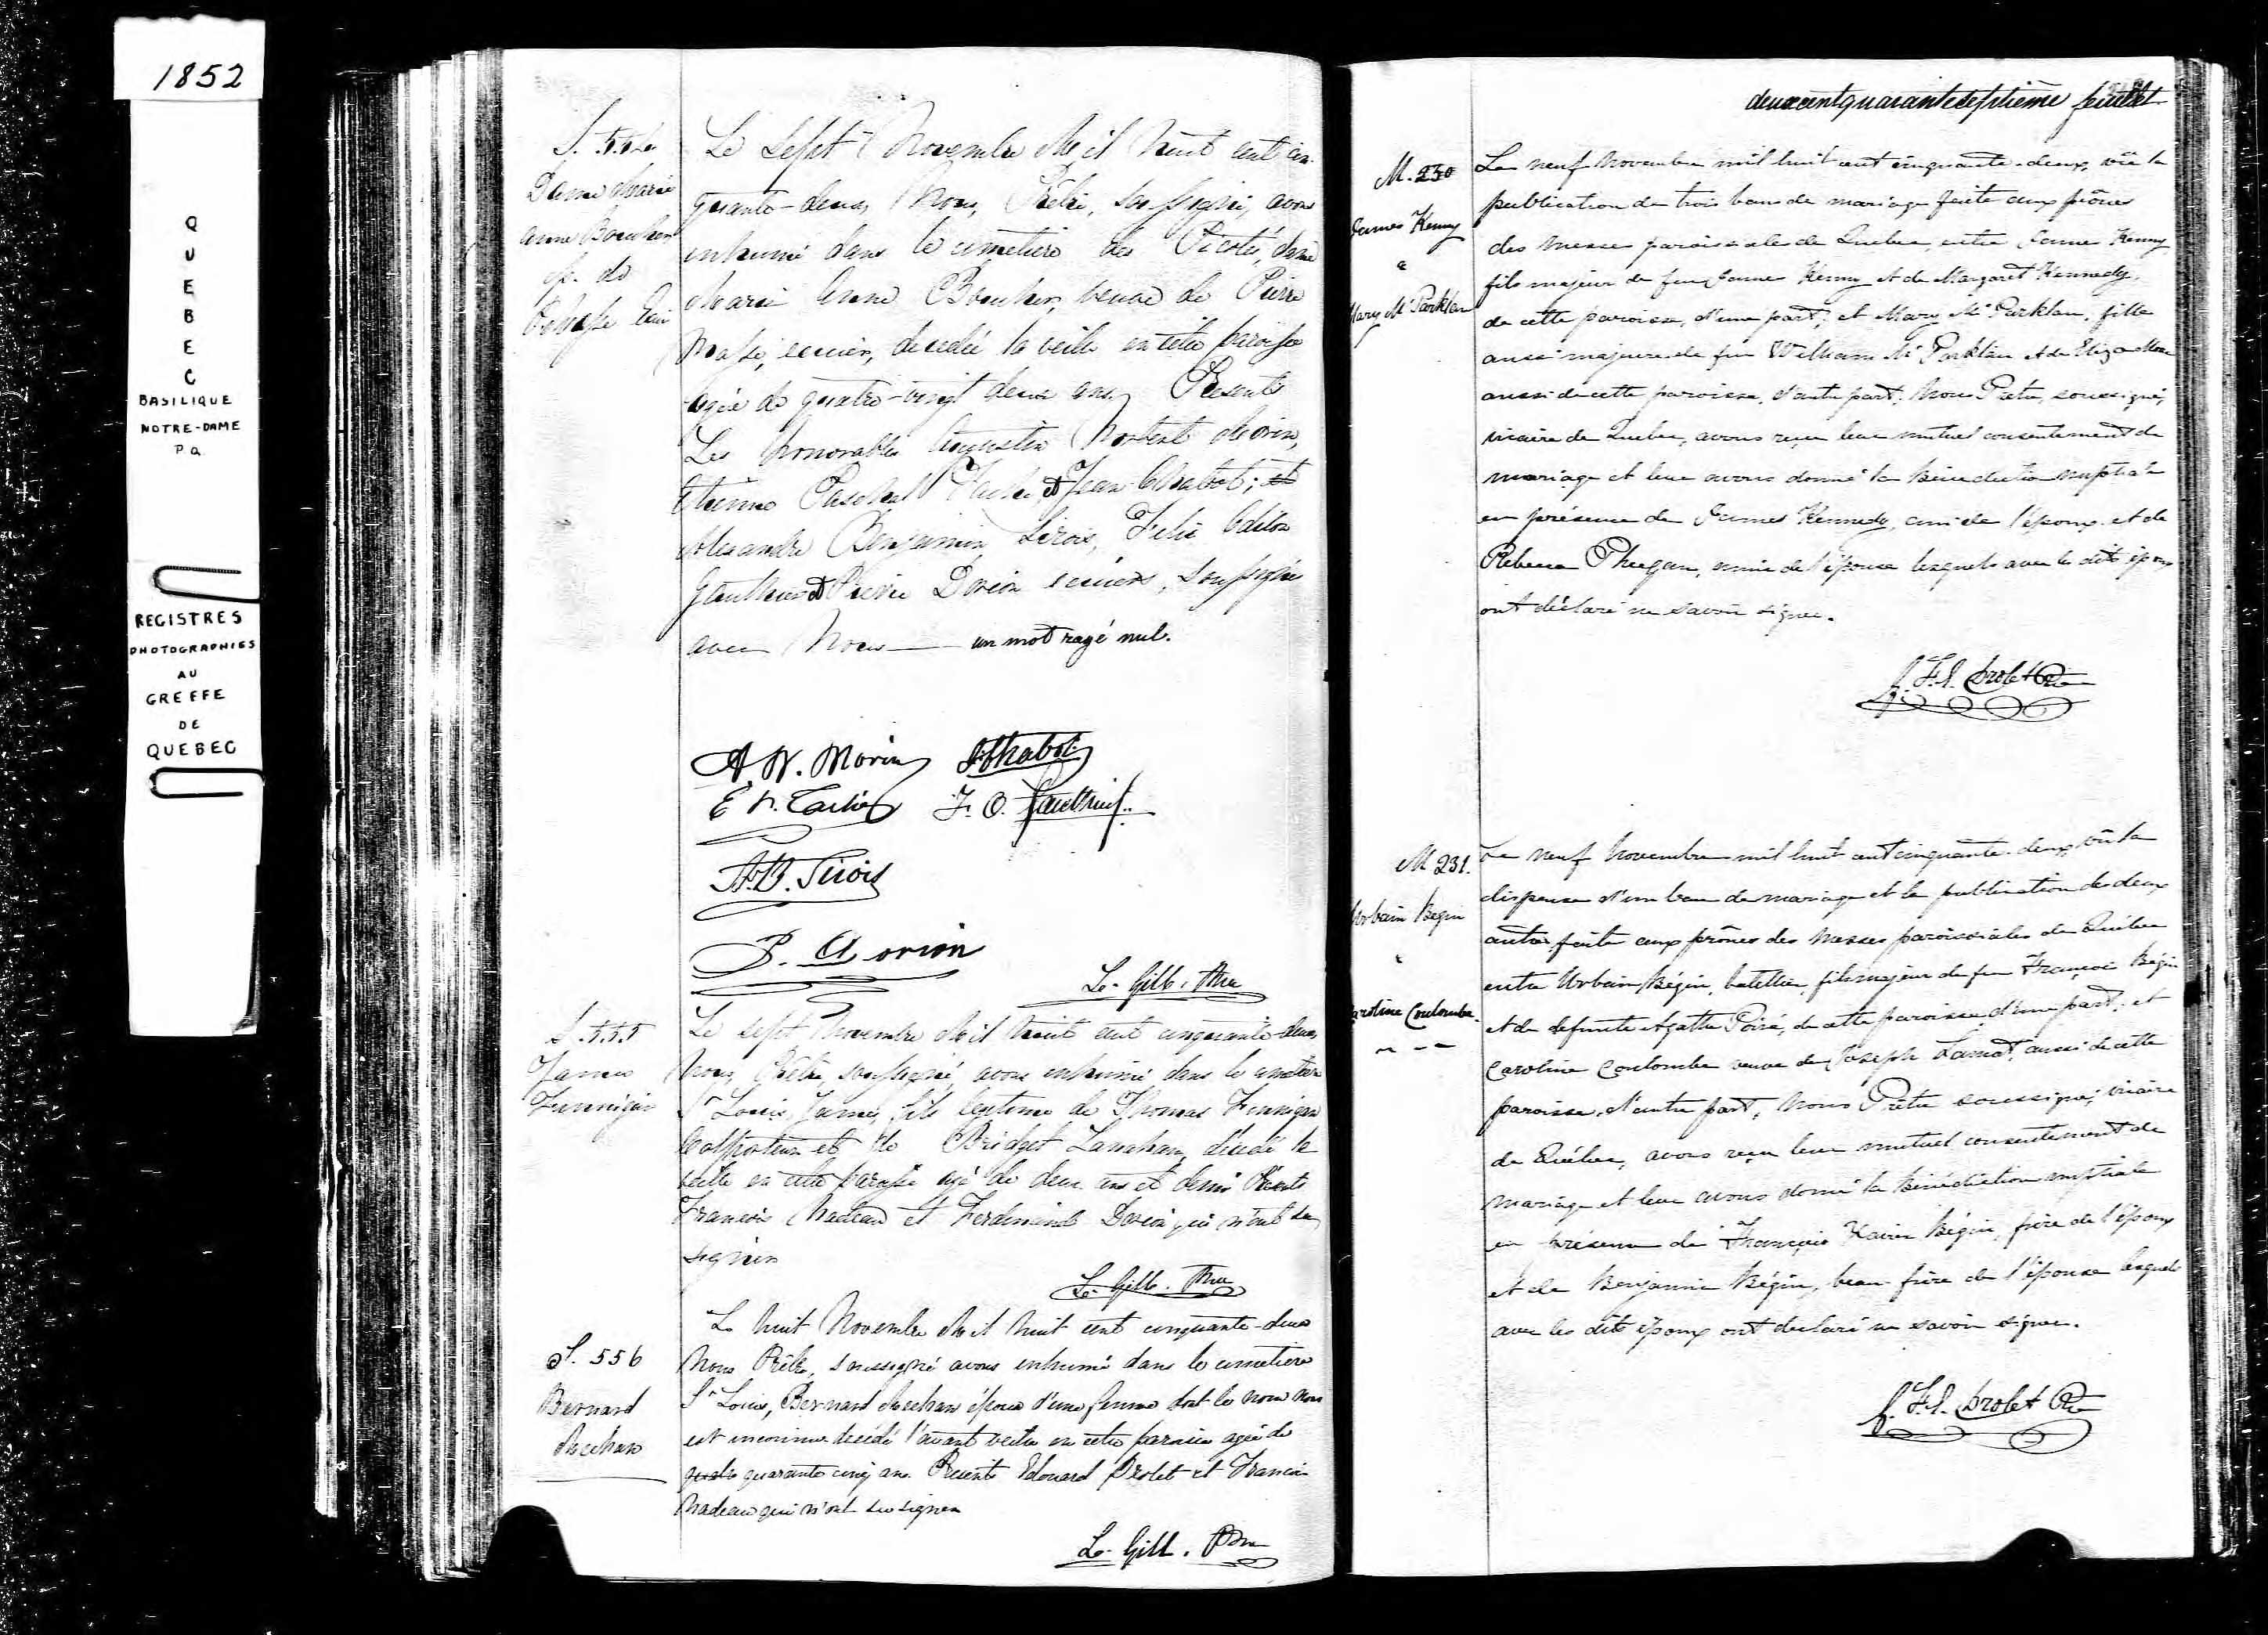 1852
QUEBEC
BASILIQUE
NOTRE-DAME
P Q
REGISTRES
PHOTOGRAPHIES
AU
GREFFE
DE
QUEBEC
S. 554
Dame Marie
anne Boucher
ép. de
Le sept Novembre Mil huit cent cin-
quante-deux, Nous, Prêtre, soussigné, avons
inhumé dans le cimetière des Picotés, dame
Marie Anne Boucher, veuve de Pierre
Masse, ecuier, decedée la veille en cette paroisse
agée de quatre-vingt deux ans. Présents
Les honorables Augustin Norbert Morin,
Etienne Paschal Taché, et Jean Chabot; et
Alexandre Benjamin Sirois, Felix Odilon
Gauthier et Pierre Dorion ecuiers, soussignés
avec Nous — un mot rayé nul.
A. N. Morin J. Chabot
E P. Taché F. O. Gauthier
A. B. Sirois
P. Dorion
L. Gill. Ptre
S. 555
James
Finnigan
Le sept Novembre Mil huit cent cinquante-deux
Nous, Prêtre, soussigné, avons inhumé dans le cimetière
St Louis, James, fils legitime de Thomas Finnigan
Colporteur et de Bridget Lanahan, décédé la
veille en cette paroisse agé de deux ans et demi Présents
Francois Nadeau et Ferdinand Dorion qui n'ont su
signer
L. Gill. Ptre
S. 556
Bernard
Meehan
Le huit Novembre Mil huit cent cinquante-deux
Nous Prêtre, soussigné avons inhumé dans le cimetière
St Louis, Bernard Meehan époux d'une femme dont le nom nous
est inconnu decédé l'avant veille en cette paroisse agé de
quatre quarante cinq ans. Présents Edouard Drolet et Francois
Nadeau qui n'ont su signer
L. Gill. Ptre
deux cent quarante septième feuillet
M. 230
James Kenny
&
Mary McParklan
Le neuf Novembre mil huit cent cinquante-deux, vû la
publication de trois bans de mariage faite aux prônes
des messes paroissiales de Quebec, entre James Kenny
fils majeur de feu James Kenny et de Margaret Kennedy,
de cette paroisse, d'une part; et Mary McParklan, fille
aussi majeure de feu William McParklan et de Eliza
aussi de cette paroisse, d'autre part, Nous Prêtre, soussigné,
vicaire de Quebec, avons reçu leur mutuel consentement de
mariage et leur avons donné la bénédiction nuptiale
en présence de James Kennedy, ami de l'époux et de
Rebecca Pheegan, amie de l'épouse lesquels avec les dits époux
ont déclaré ne savoir signer.
F. S. Drolet Ptre
M 231.
Urbain Begin
&
Caroline Coulombe.
Le neuf Novembre mil huit cent cinquante-deux, vû la
dispense d'un ban de mariage et la publication des deux
autres faite aux prônes des messes paroissiales de Québec
entre Urbain Bégin, batellier, fils majeur de feu François Bégin
et de defunte Agathe Poiré, de cette paroisse d'une part, et
Caroline Coulombe veuve de Joseph Lamot, aussi de cette
paroisse, d'autre part, Nous Prêtre soussigné, vicaire
de Québec, avons reçu leur mutuel consentement de
mariage et leur avons donné la Bénédiction nuptiale
en présence de François Xavier Bégin, frère de l'époux
et de Benjamin Bégin, beau-frère de l'épouse lesquels
avec les dits époux ont déclaré ne savoir signer.
F. S. Drolet Ptre